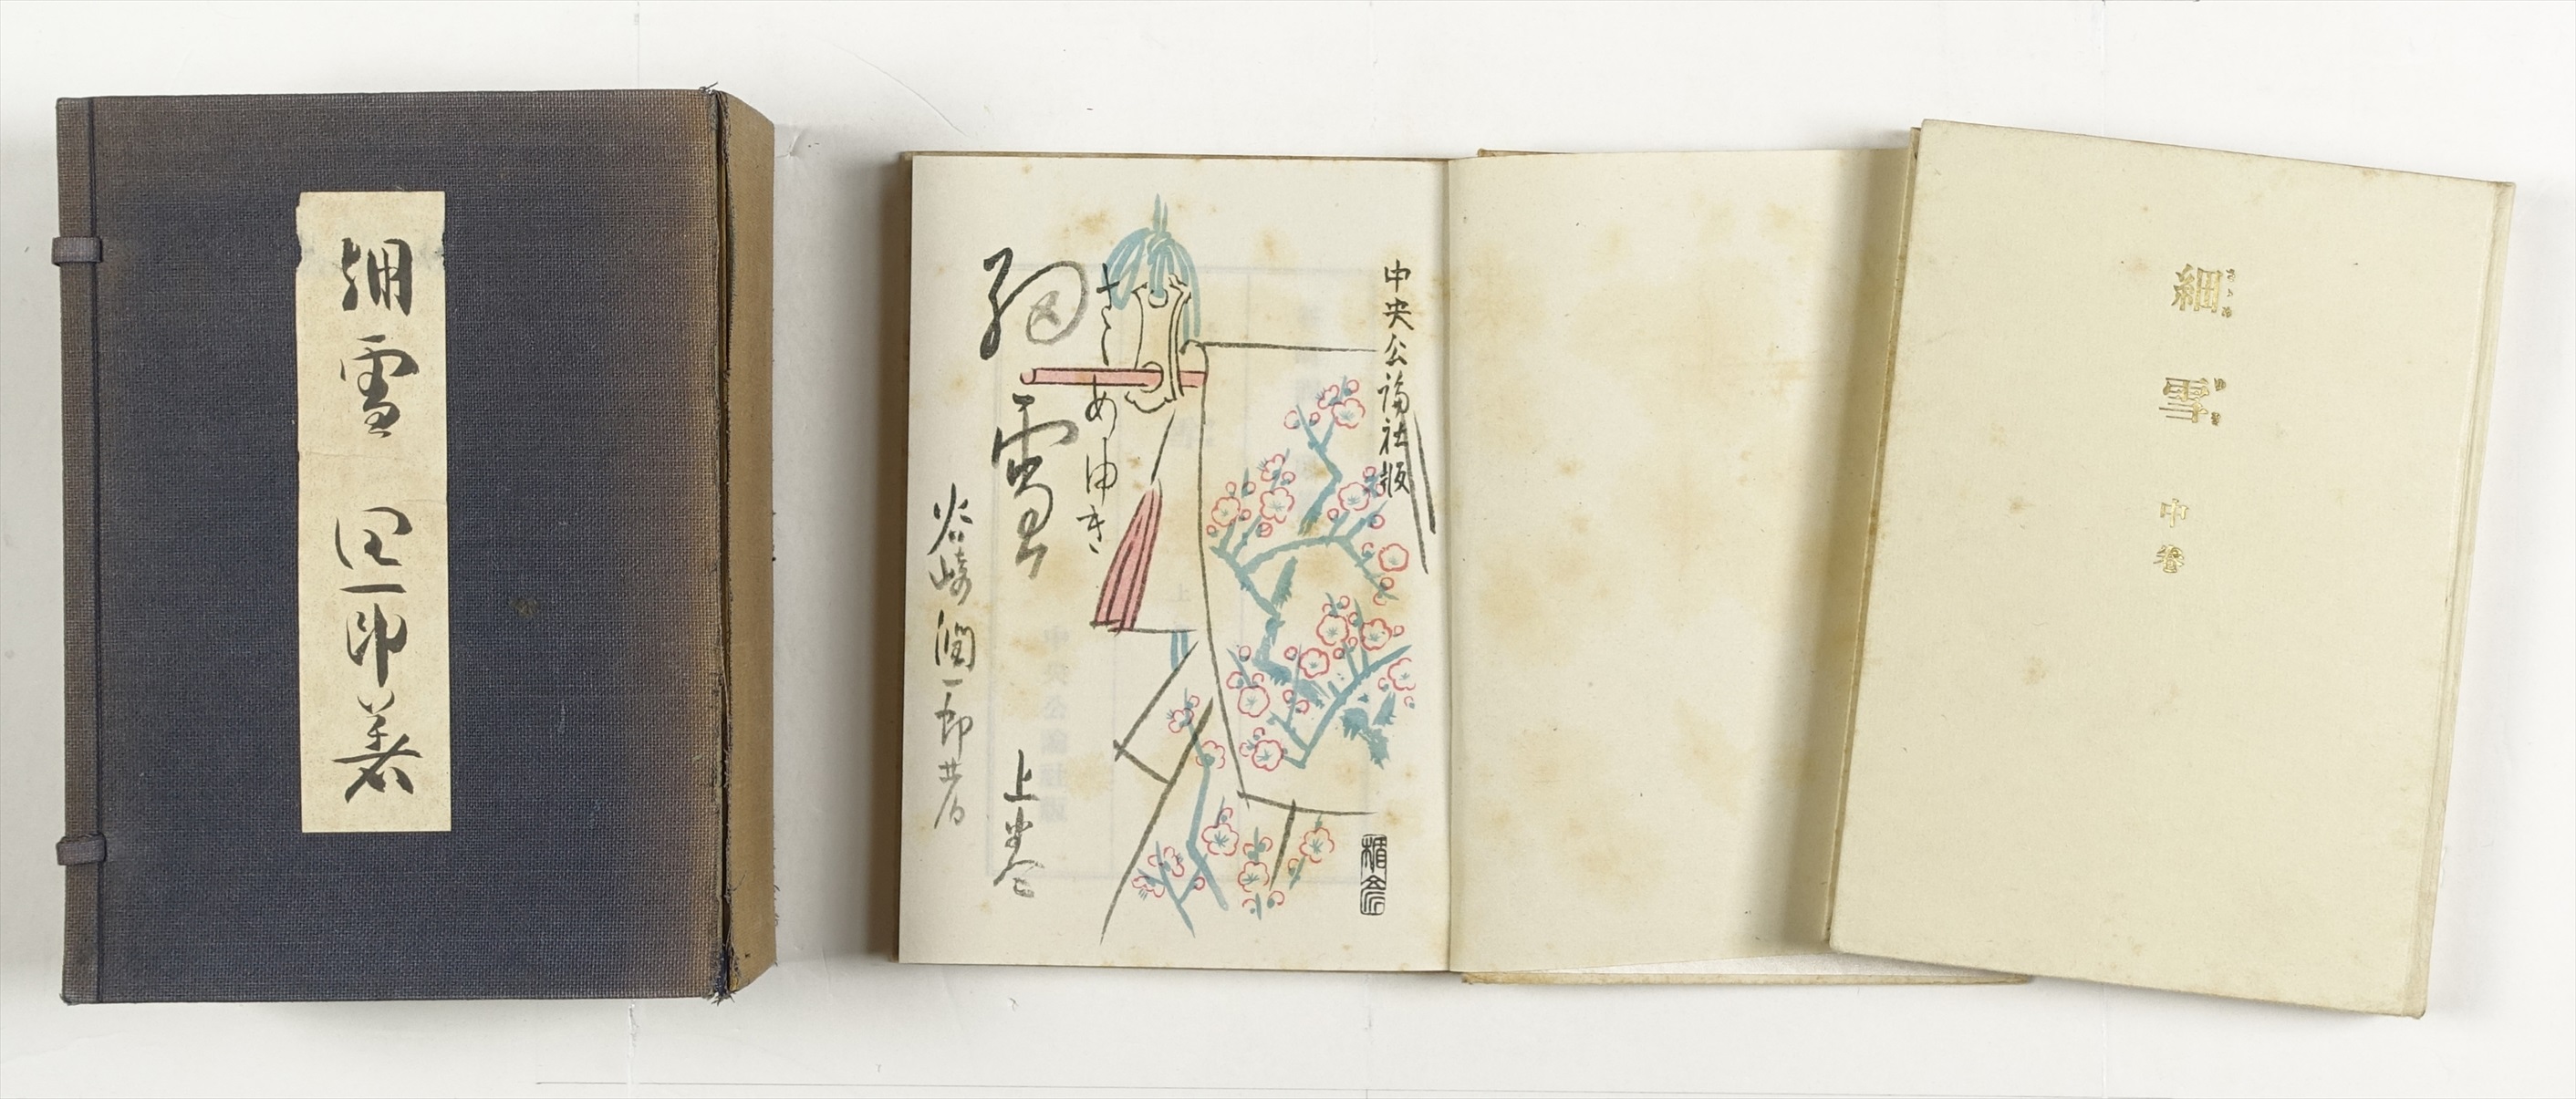 細雪 潤一郎著
中央公論社版
さゝめゆき
細雪 上巻
谷崎潤一郎著
細雪 中巻